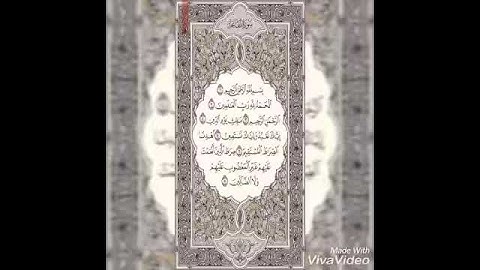 سورة الفاتحة
بِسْمِ اللَّهِ الرَّحْمَٰنِ الرَّحِيمِ ۝١
الْحَمْدُ لِلَّهِ رَبِّ الْعَالَمِينَ ۝٢
الرَّحْمَٰنِ الرَّحِيمِ ۝٣ مَالِكِ يَوْمِ الدِّينِ ۝٤
إِيَّاكَ نَعْبُدُ وَإِيَّاكَ نَسْتَعِينُ ۝٥ اهْدِنَا
الصِّرَاطَ الْمُسْتَقِيمَ ۝٦ صِرَاطَ الَّذِينَ أَنْعَمْتَ
عَلَيْهِمْ غَيْرِ الْمَغْضُوبِ عَلَيْهِمْ
وَلَا الضَّالِّينَ ۝٧
Made With
VivaVideo